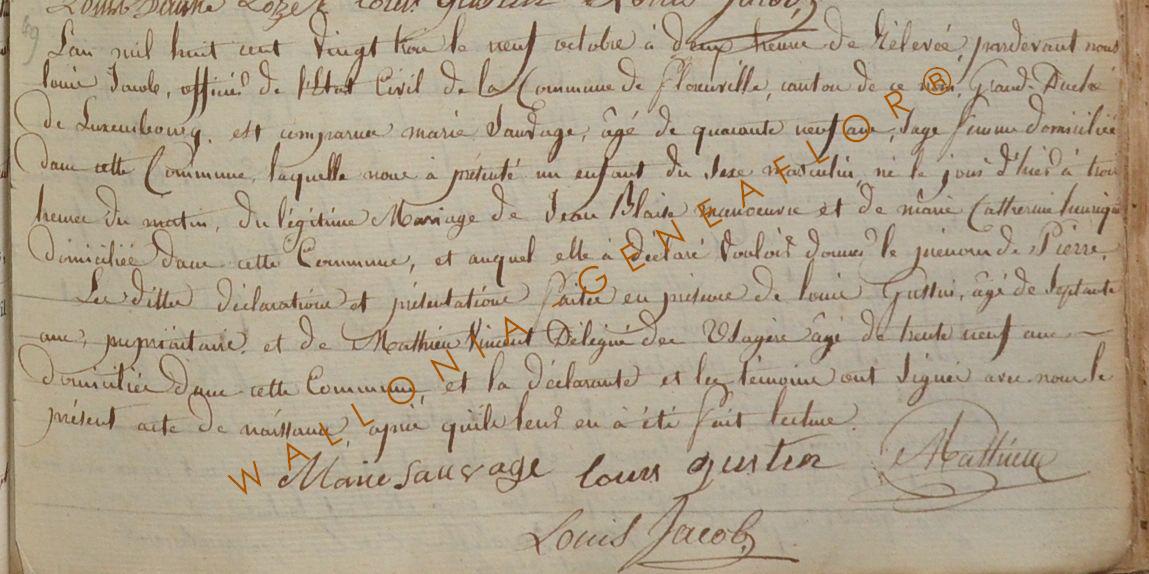 Louis Jacob
L'an mil huit cent vingt trois le neuf octobre à deux heures de rélevée, pardevant nous
louis Jacob, officier de l'Etat Civil de la Commune de florenville, canton de ce nom, Grand-Duché
de Luxembourg, est comparue marie Sauvage, âgé de quarante neuf ans, Sage femme domiciliée
dans cette Commune, laquelle nous à présenté un enfant du Sexe masculin, né le jour d'hier à trois
heures du matin, du légitime Mariage de Jean Blaise manoeuvre et de marie Catherine
domiciliés dans cette Commune, et auquel elle à déclaré vouloir donner le prénom de Pierre.
Les dittes déclarations et présentations faites en présence de louis Gustin, âgé de Septante
ans, propriétaire, et de Mathieu Vincent Délégué des Usagers âgé de trente neuf ans
domiciliés dans cette Commune, et la déclarante et les témoins ont Signés avec nous le
présent acte de naissance, après qu'ils leur en à été fait lecture.
Marie sauvage louis gustin Mathieu
Louis Jacob
WALLONIA GENEAFLOR®